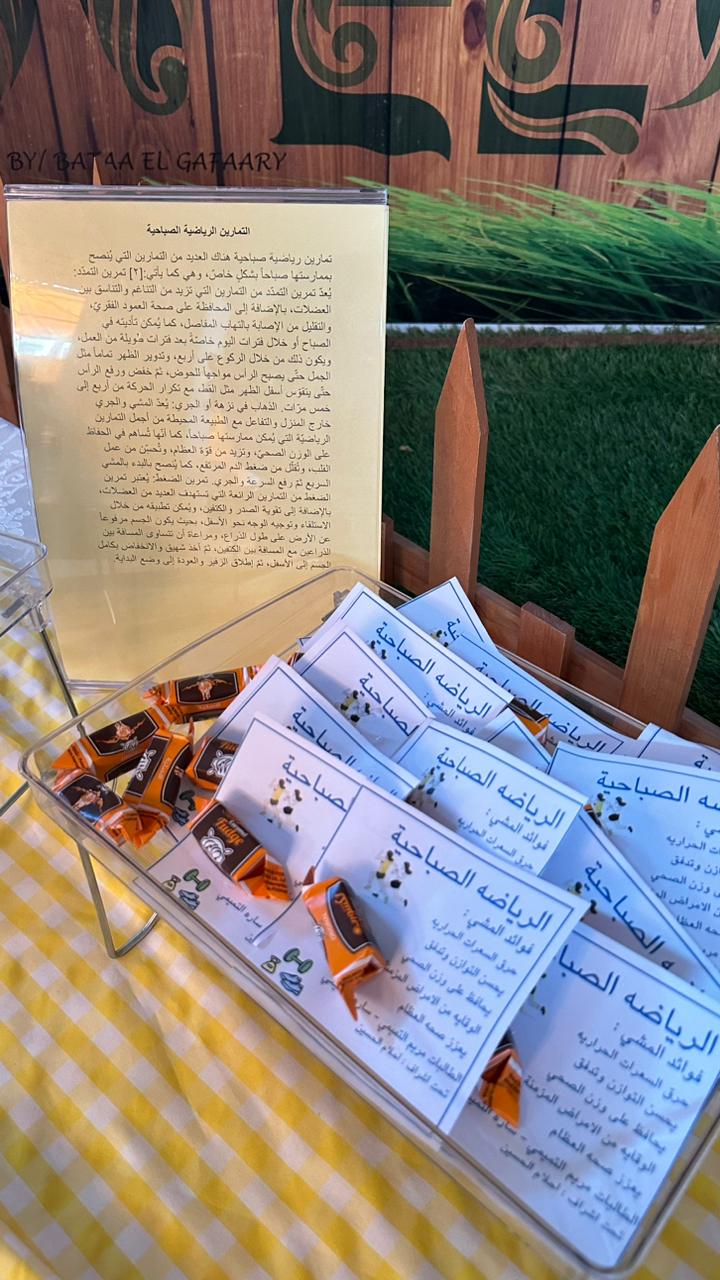 BY/ BATAA EL GAFAARY
التمارين الرياضية الصباحية
تمارين رياضية صباحية هناك العديد من التمارين التي يُنصح
بممارستها صباحاً بشكلٍ خاصّ، وهي كما يأتي:[٢] تمرين التمدّد:
يُعدّ تمرين التمدّد من التمارين التي تزيد من التناغم والتناسق بين
العضلات، بالإضافة إلى المحافظة على صحة العمود الفقريّ،
والتقليل من الإصابة بالتهاب المفاصل، كما يُمكن تأديته في
الصباح أو خلال فترات اليوم خاصّةً بعد فترات طويلة من العمل،
ويكون ذلك من خلال الركوع على أربع، وتدوير الظهر تماماً مثل
الجمل حتّى يصبح الرأس مواجهاً للحوض، ثمّ خفض ورفع الرأس
حتّى يتقوّس أسفل الظهر مثل القط، مع تكرار الحركة من أربع إلى
خمس مرّات. الذهاب في نزهة أو الجري: يُعدّ المشي والجري
خارج المنزل والتفاعل مع الطبيعة المحيطة من أجمل التمارين
الرياضيّة التي يُمكن ممارستها صباحاً، كما أنّها تُساهم في الحفاظ
على الوزن الصحيّ، وتزيد من قوّة العظام، وتُحسّن من عمل
القلب، وتُقلّل من ضغط الدم المرتفع، كما يُنصح بالبدء بالمشي
السريع ثمّ رفع السرعة والجري. تمرين الضغط: يُعتبر تمرين
الضغط من التمارين الرائعة التي تستهدف العديد من العضلات،
بالإضافة إلى تقوية الصدر والكتفين، ويُمكن تطبيقه من خلال
الاستلقاء وتوجيه الوجه نحو الأسفل، بحيث يكون الجسم مرفوعاً
عن الأرض على طول الذراع، ومراعاة أن تتساوى المسافة بين
الذراعين مع المسافة بين الكتفين، ثمّ أخذ شهيق والانخفاض بكامل
الجسم إلى الأسفل، ثمّ إطلاق الزفير والعودة إلى وضع البداية.
الرياضه الصباحية
فوائد المشي :
الصباحية
الرياضه
الصباحية
الرياضه الصباحية
فوائد المشي :
حرق السعرات الحراريه
الصباحية
الرياضه الصباحية
فوائد المشي :
حرق السعرات الحراريه
يحسن التوازن وتدفق
يحافظ على وزن الصحي
الوقايه من الامراض المزمنة
يعزز صحه العظام
الطالبات مريم التميمي - سارة
تحت اشراف : احلام الحسين
ساره التميمي
الرياضه
فوائد المشي :
حرق السعرات الحراريه
يحسن التوازن وتدفق
يحافظ على وزن الصحي
الوقايه من الامراض المزمنة
يعزز صحه العظام
الطالبات مريم التميمي - سارة
تحت اشراف : احلام الحسين
Fudge